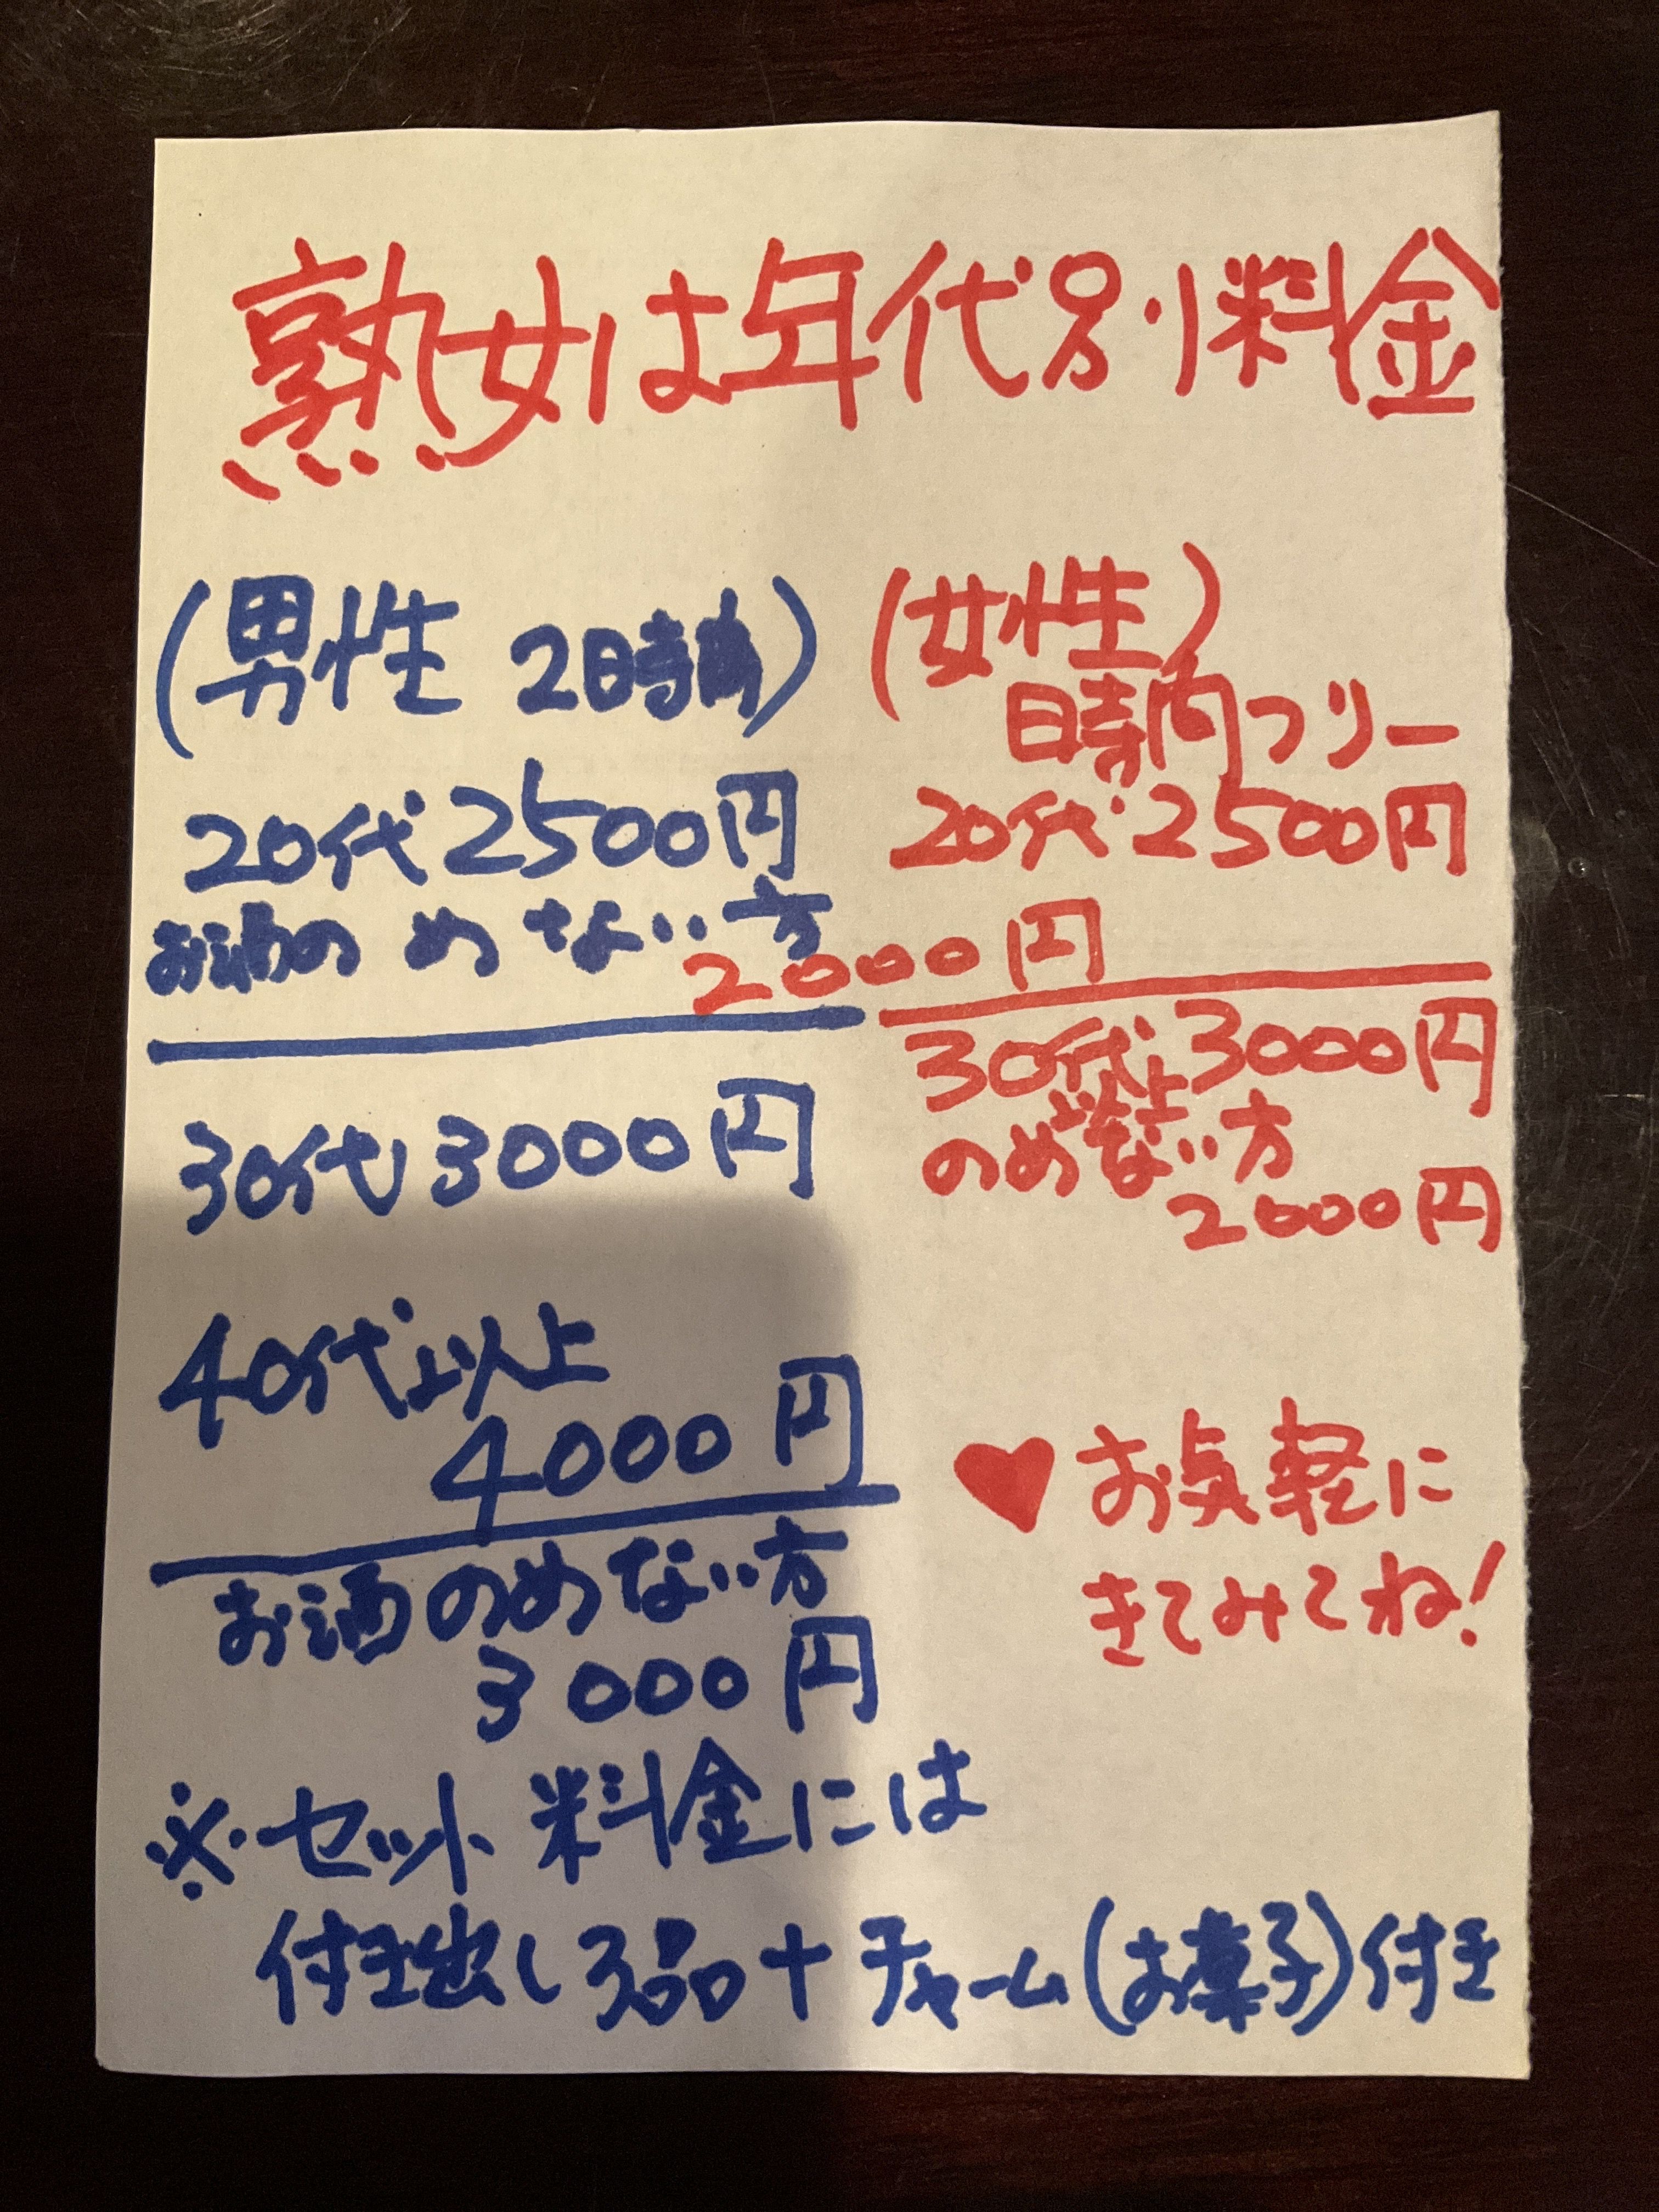 熟女は年代別料金
(男性 2時間)
20代 2500円
お酒のめない方
2000円
30代 3000円
40代以上
4000円
お酒のめない方
3000円
(女性)
時間フリー
20代 2500円
30代以上 3000円
のめない方
2000円
♥お気軽に
きてみてね!
※セット料金には
付き出し3品+チャーム(お菓子)付き